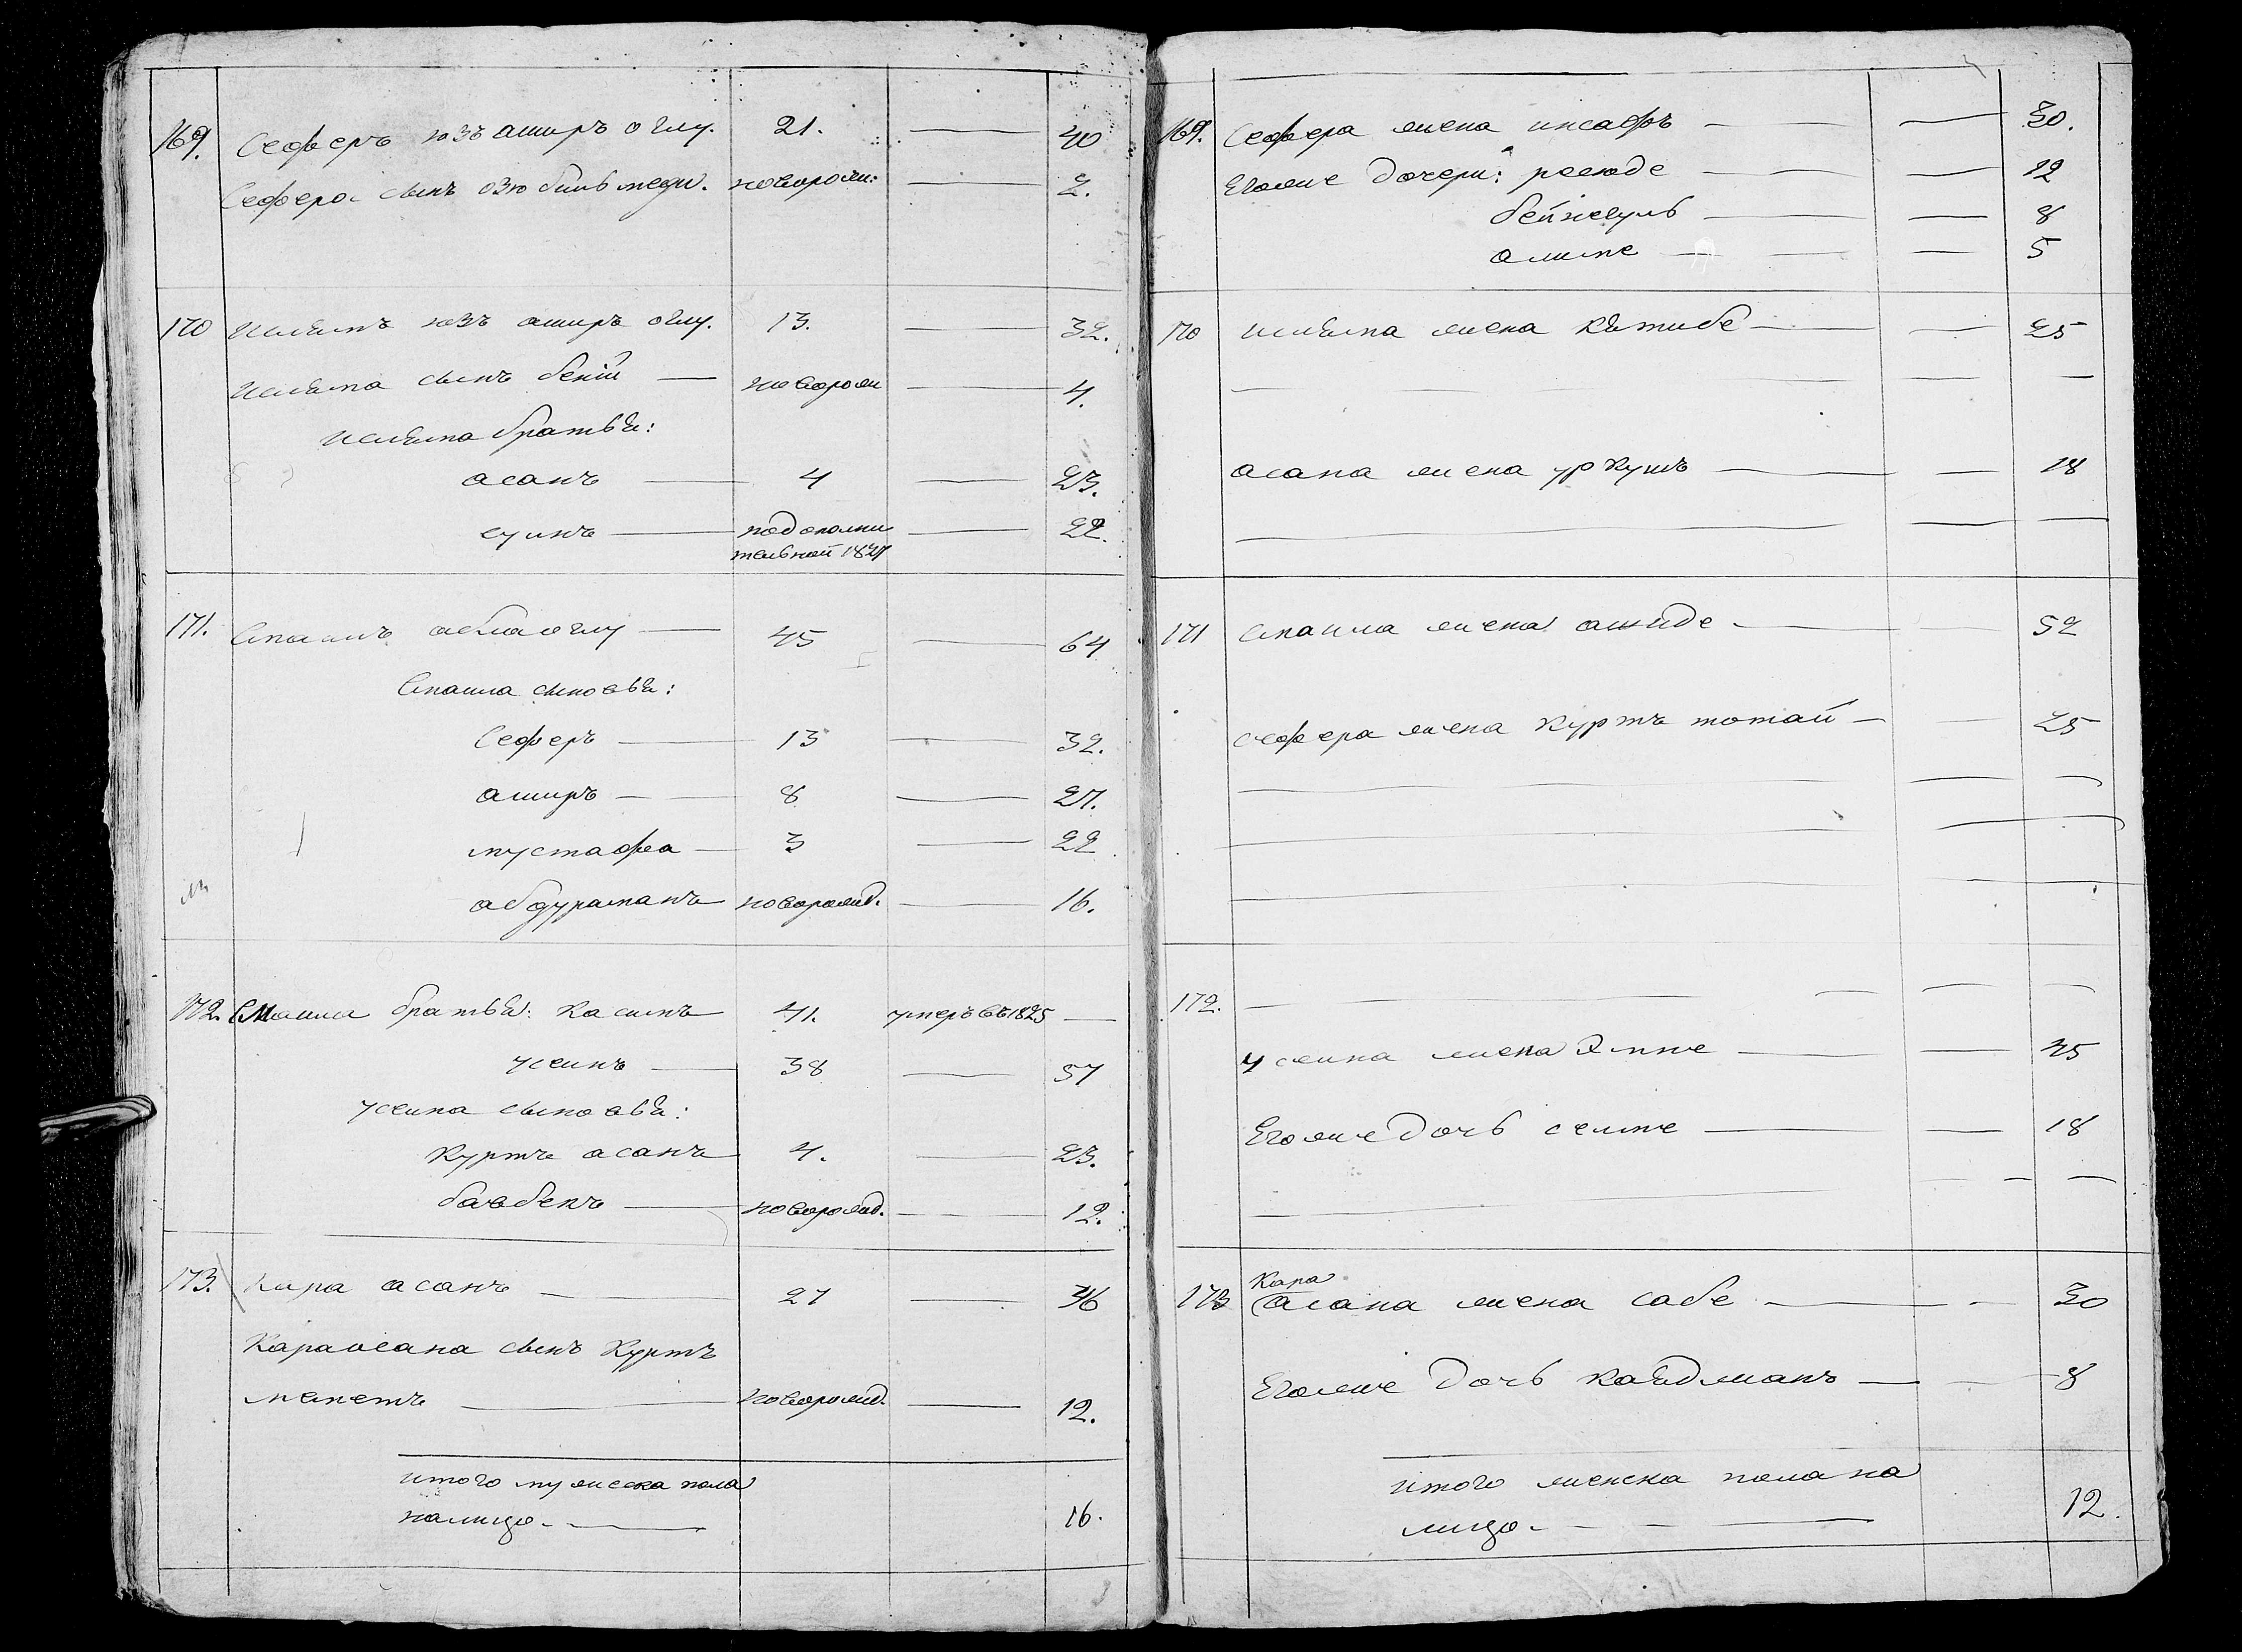 169. Сеферъ юзъ аширъ оглу. 21. — 40
Сефера сынъ озю бильмеди. новорож: — 2.
170 Ислямъ юзъ аширъ оглу. 13. — 32.
Исляма сынъ бекій — новорож — 4.
Исляма братья:
асанъ — 4 — 23.
сеинъ — по дополни — 22.
тельной 1827
171. Смаилъ аблаоглу — 45 — 64
Смаила сыновья:
Сеферъ — 13 — 32.
аширъ — 8 — 27.
мустафа — 3 — 22
абдураманъ новорожд. — 16.
172. Смаила братья: касимъ 41. умеръ въ 1825 —
усеинъ — 38 — 57
усеина сыновья:
куртъ асанъ 4. — 23.
баъбекъ — новорожд. — 12.
173. кара асанъ — 27 — 46
Караасана сынъ куртъ
меметъ — новорожд. — 12.
итого мужеска пола
налицо — 16.
169. Сефера жена инсафъ — — 30.
Егоже дочери: — — 12
бейнегуль — — 8
алиме — — 5
170 Исляма жена кятибе — — 25
— — —
асана жена уркушъ — — 18
— — —
171 Смаила жена ашиде — — 52
сефера жена куртъ тотай — — 25
— — —
— — —
— — —
172. — — —
усеина жена Эмине — — 45
Егоже дочь селиме — — 18
— — —
Кара
173 асана жена сабе — — 30
Егоже дочь кайдманъ — — 8
итого женска пола на
лицо — 12.